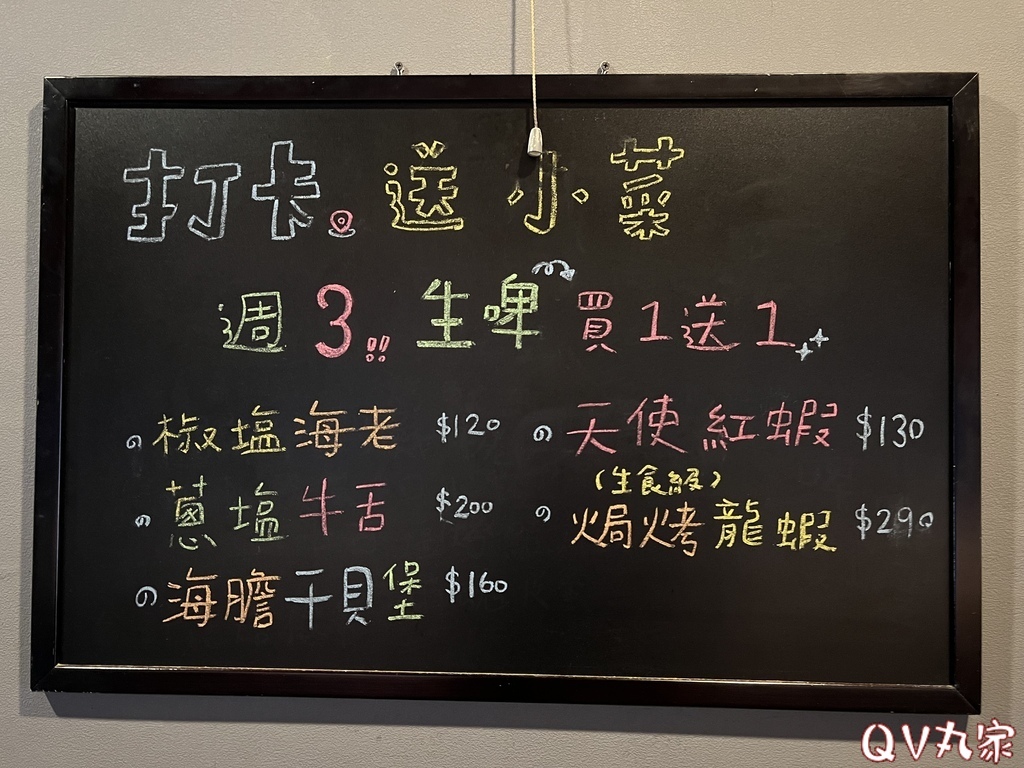 打卡 送小菜
週3!! 生啤 買1送1
の 椒塩海老 $120
の 蔥塩牛舌 $200
の 海膽干貝堡 $160
の 天使紅蝦 $130
(生食級)
の 焗烤龍蝦 $290
QV丸家